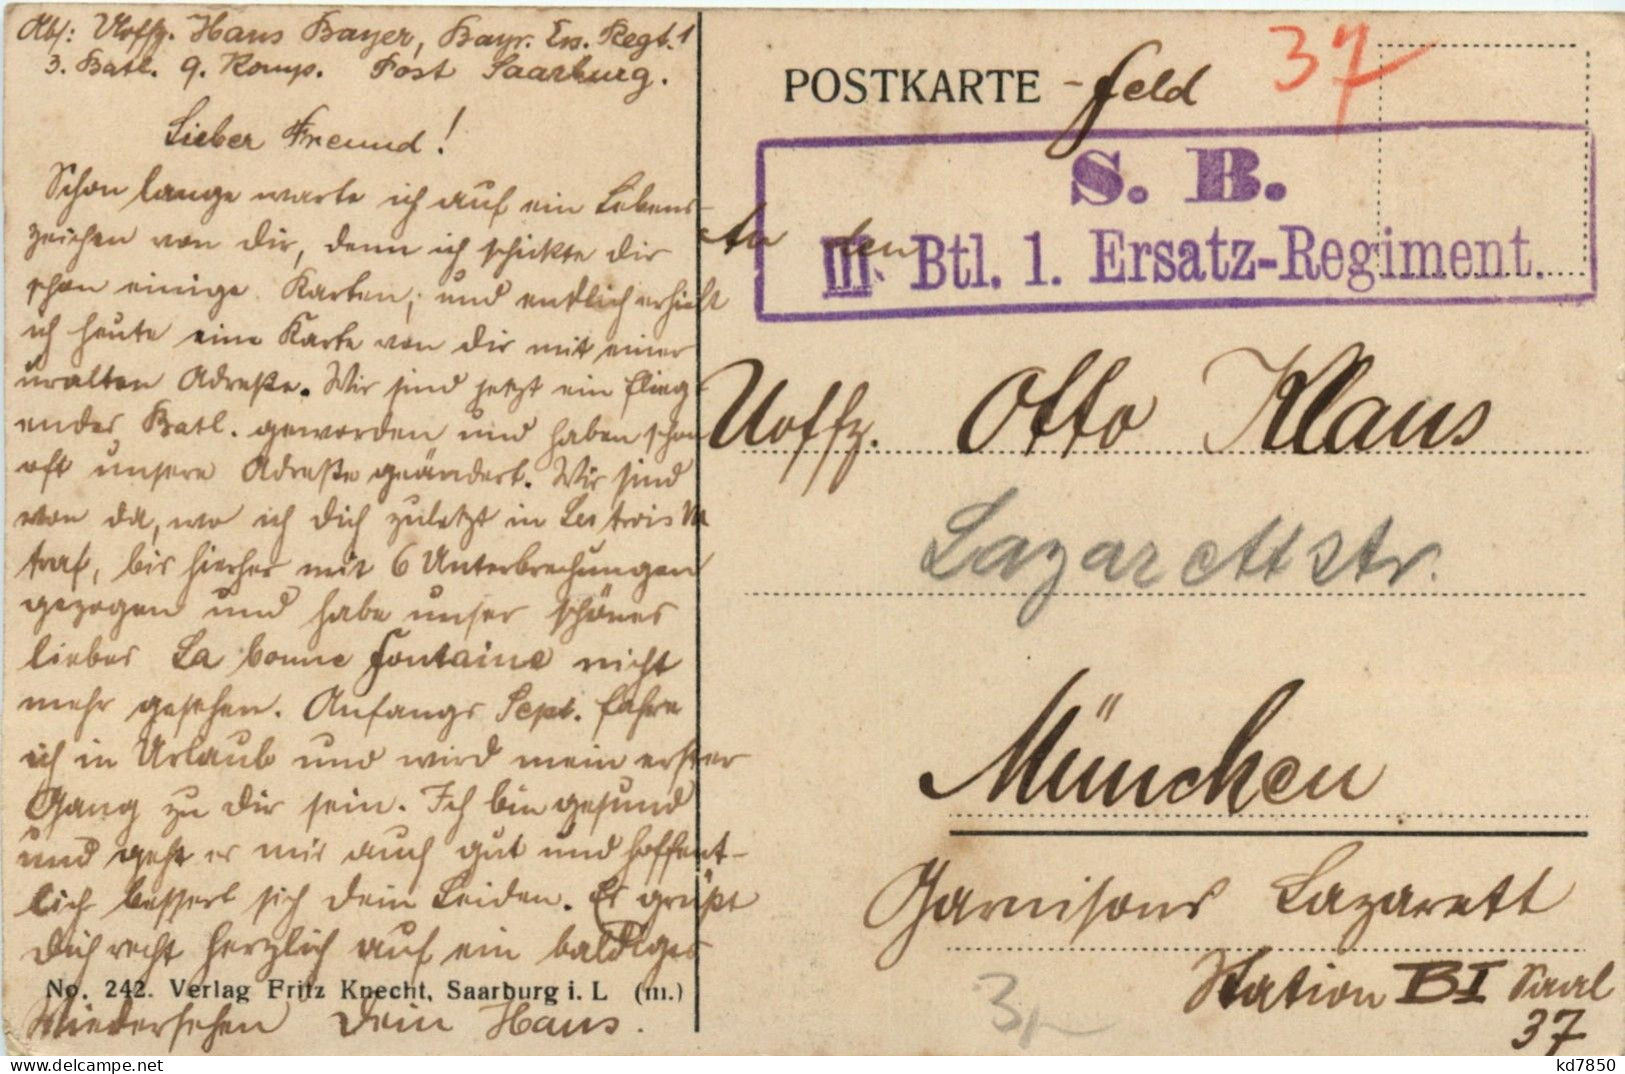 Abs: Uoffz. Hans Bayer, Bayr. Ers. Regt. 1
3. Batl. 9. Komp. Post Saarburg.
Lieber Freund!
Schon lange warte ich auf ein Lebens-
zeichen von dir, denn ich schickte dir
schon einige Karten, und endlich erhielt
ich heute eine Karte von dir mit einer
uralten Adreße. Wir sind jetzt ein flieg-
endes Batl. geworden und haben schon
oft unsere Adreße geändert. Wir sind
von da, wo ich dich zuletzt in Les trois
traf, bis hierher mit 6 Unterbrechungen
gezogen und habe unser schönes
liebes La bonne Fontaine nicht
mehr gesehen. Anfangs Sept. fahre
ich in Urlaub und wird mein erster
Gang zu dir sein. Ich bin gesund
und geht es mir auch gut und hoffent-
lich bessert sich dein Leiden. Es grüßt
dich recht herzlich auf ein baldiges
No. 242. Verlag Fritz Knecht, Saarburg i. L. (m.)
Wiedersehen Dein Hans.
POSTKARTE - Feld
37
S. B.
III. Btl. 1. Ersatz-Regiment.
An den
Uoffz. Otto Klaus
Lazarettstr.
München
Garnisons Lazarett
Station B I Saal
37
3,-
kd7850